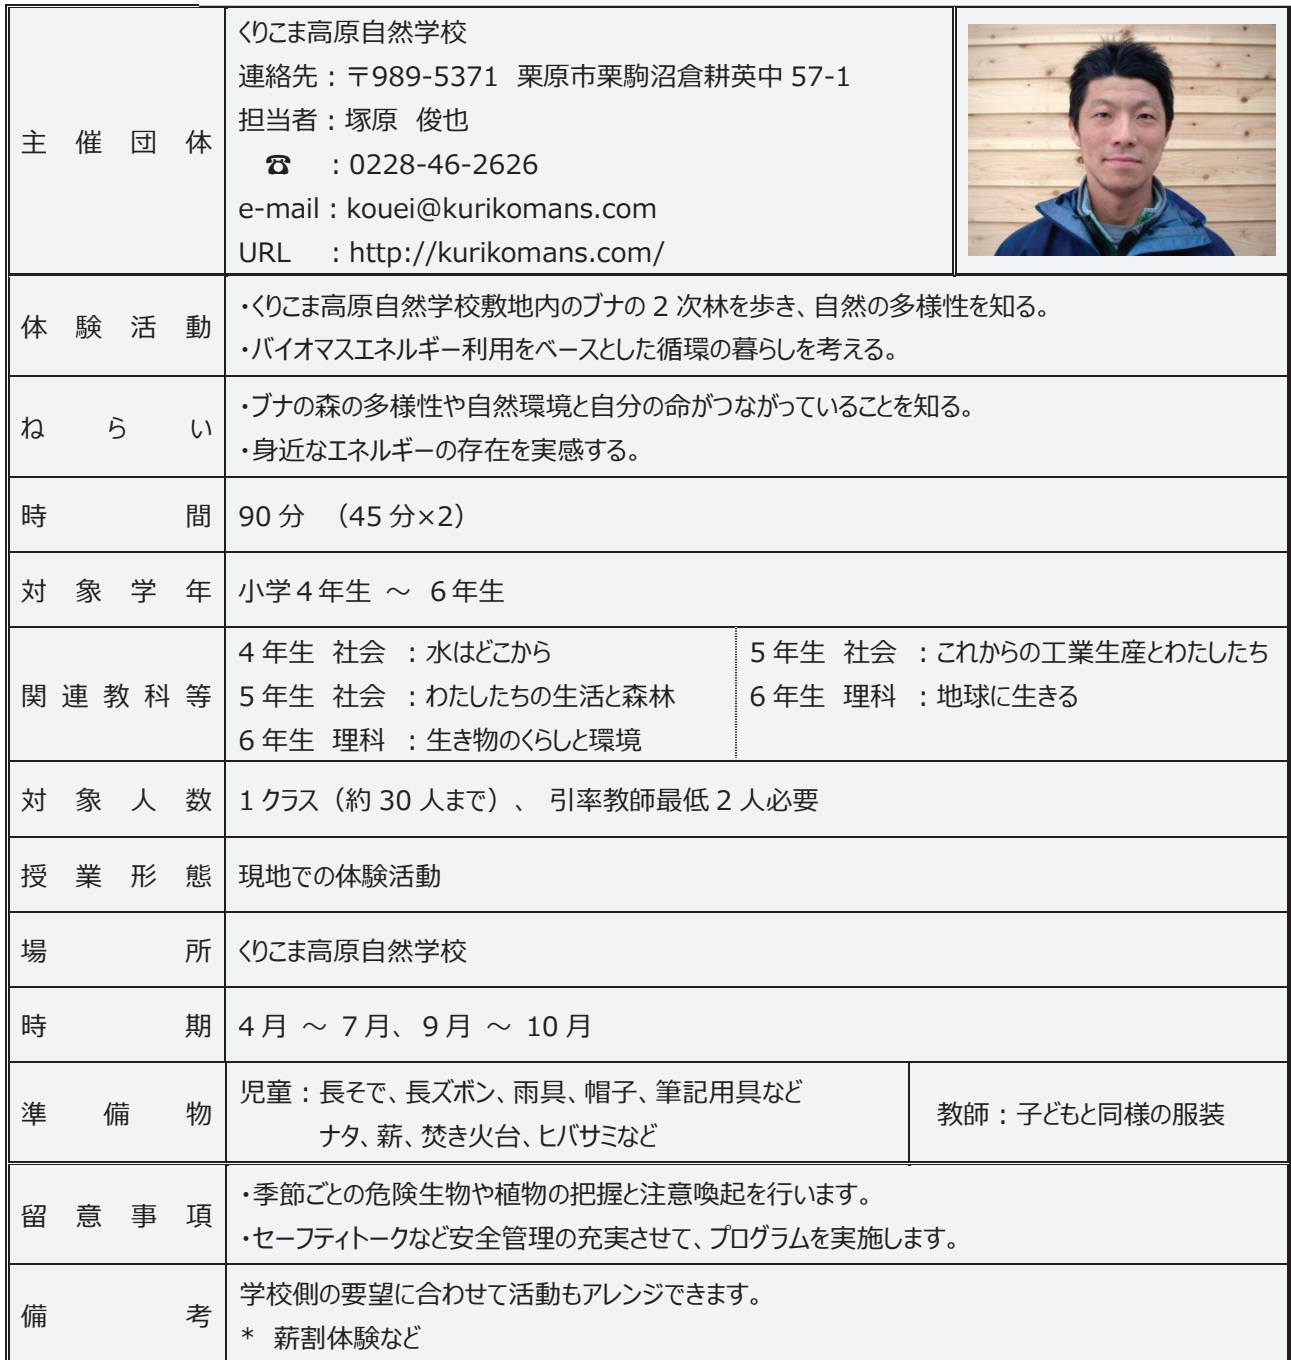 主催団体
くりこま高原自然学校
連絡先：〒989-5371 栗原市栗駒沼倉耕英中 57-1
担当者：塚原 俊也
☎ ：0228-46-2626
e-mail：kouei@kurikomans.com
URL ：http://kurikomans.com/
体験活動
・くりこま高原自然学校敷地内のブナの 2 次林を歩き、自然の多様性を知る。
・バイオマスエネルギー利用をベースとした循環の暮らしを考える。
ねらい
・ブナの森の多様性や自然環境と自分の命がつながっていることを知る。
・身近なエネルギーの存在を実感する。
時間
90 分 （45 分×2）
対象学年
小学４年生 ～ ６年生
関連教科等
４年生 社会 ：水はどこから
５年生 社会 ：わたしたちの生活と森林
６年生 理科 ：生き物のくらしと環境
５年生 社会 ：これからの工業生産とわたしたち
６年生 理科 ：地球に生きる
対象人数
1 クラス（約 30 人まで）、 引率教師最低 2 人必要
授業形態
現地での体験活動
場所
くりこま高原自然学校
時期
４月 ～ ７月、９月 ～ 10 月
準備物
児童：長そで、長ズボン、雨具、帽子、筆記用具など
ナタ、薪、焚き火台、ヒバサミなど
教師：子どもと同様の服装
留意事項
・季節ごとの危険生物や植物の把握と注意喚起を行います。
・セーフティトークなど安全管理の充実させて、プログラムを実施します。
備考
学校側の要望に合わせて活動もアレンジできます。
* 薪割体験など